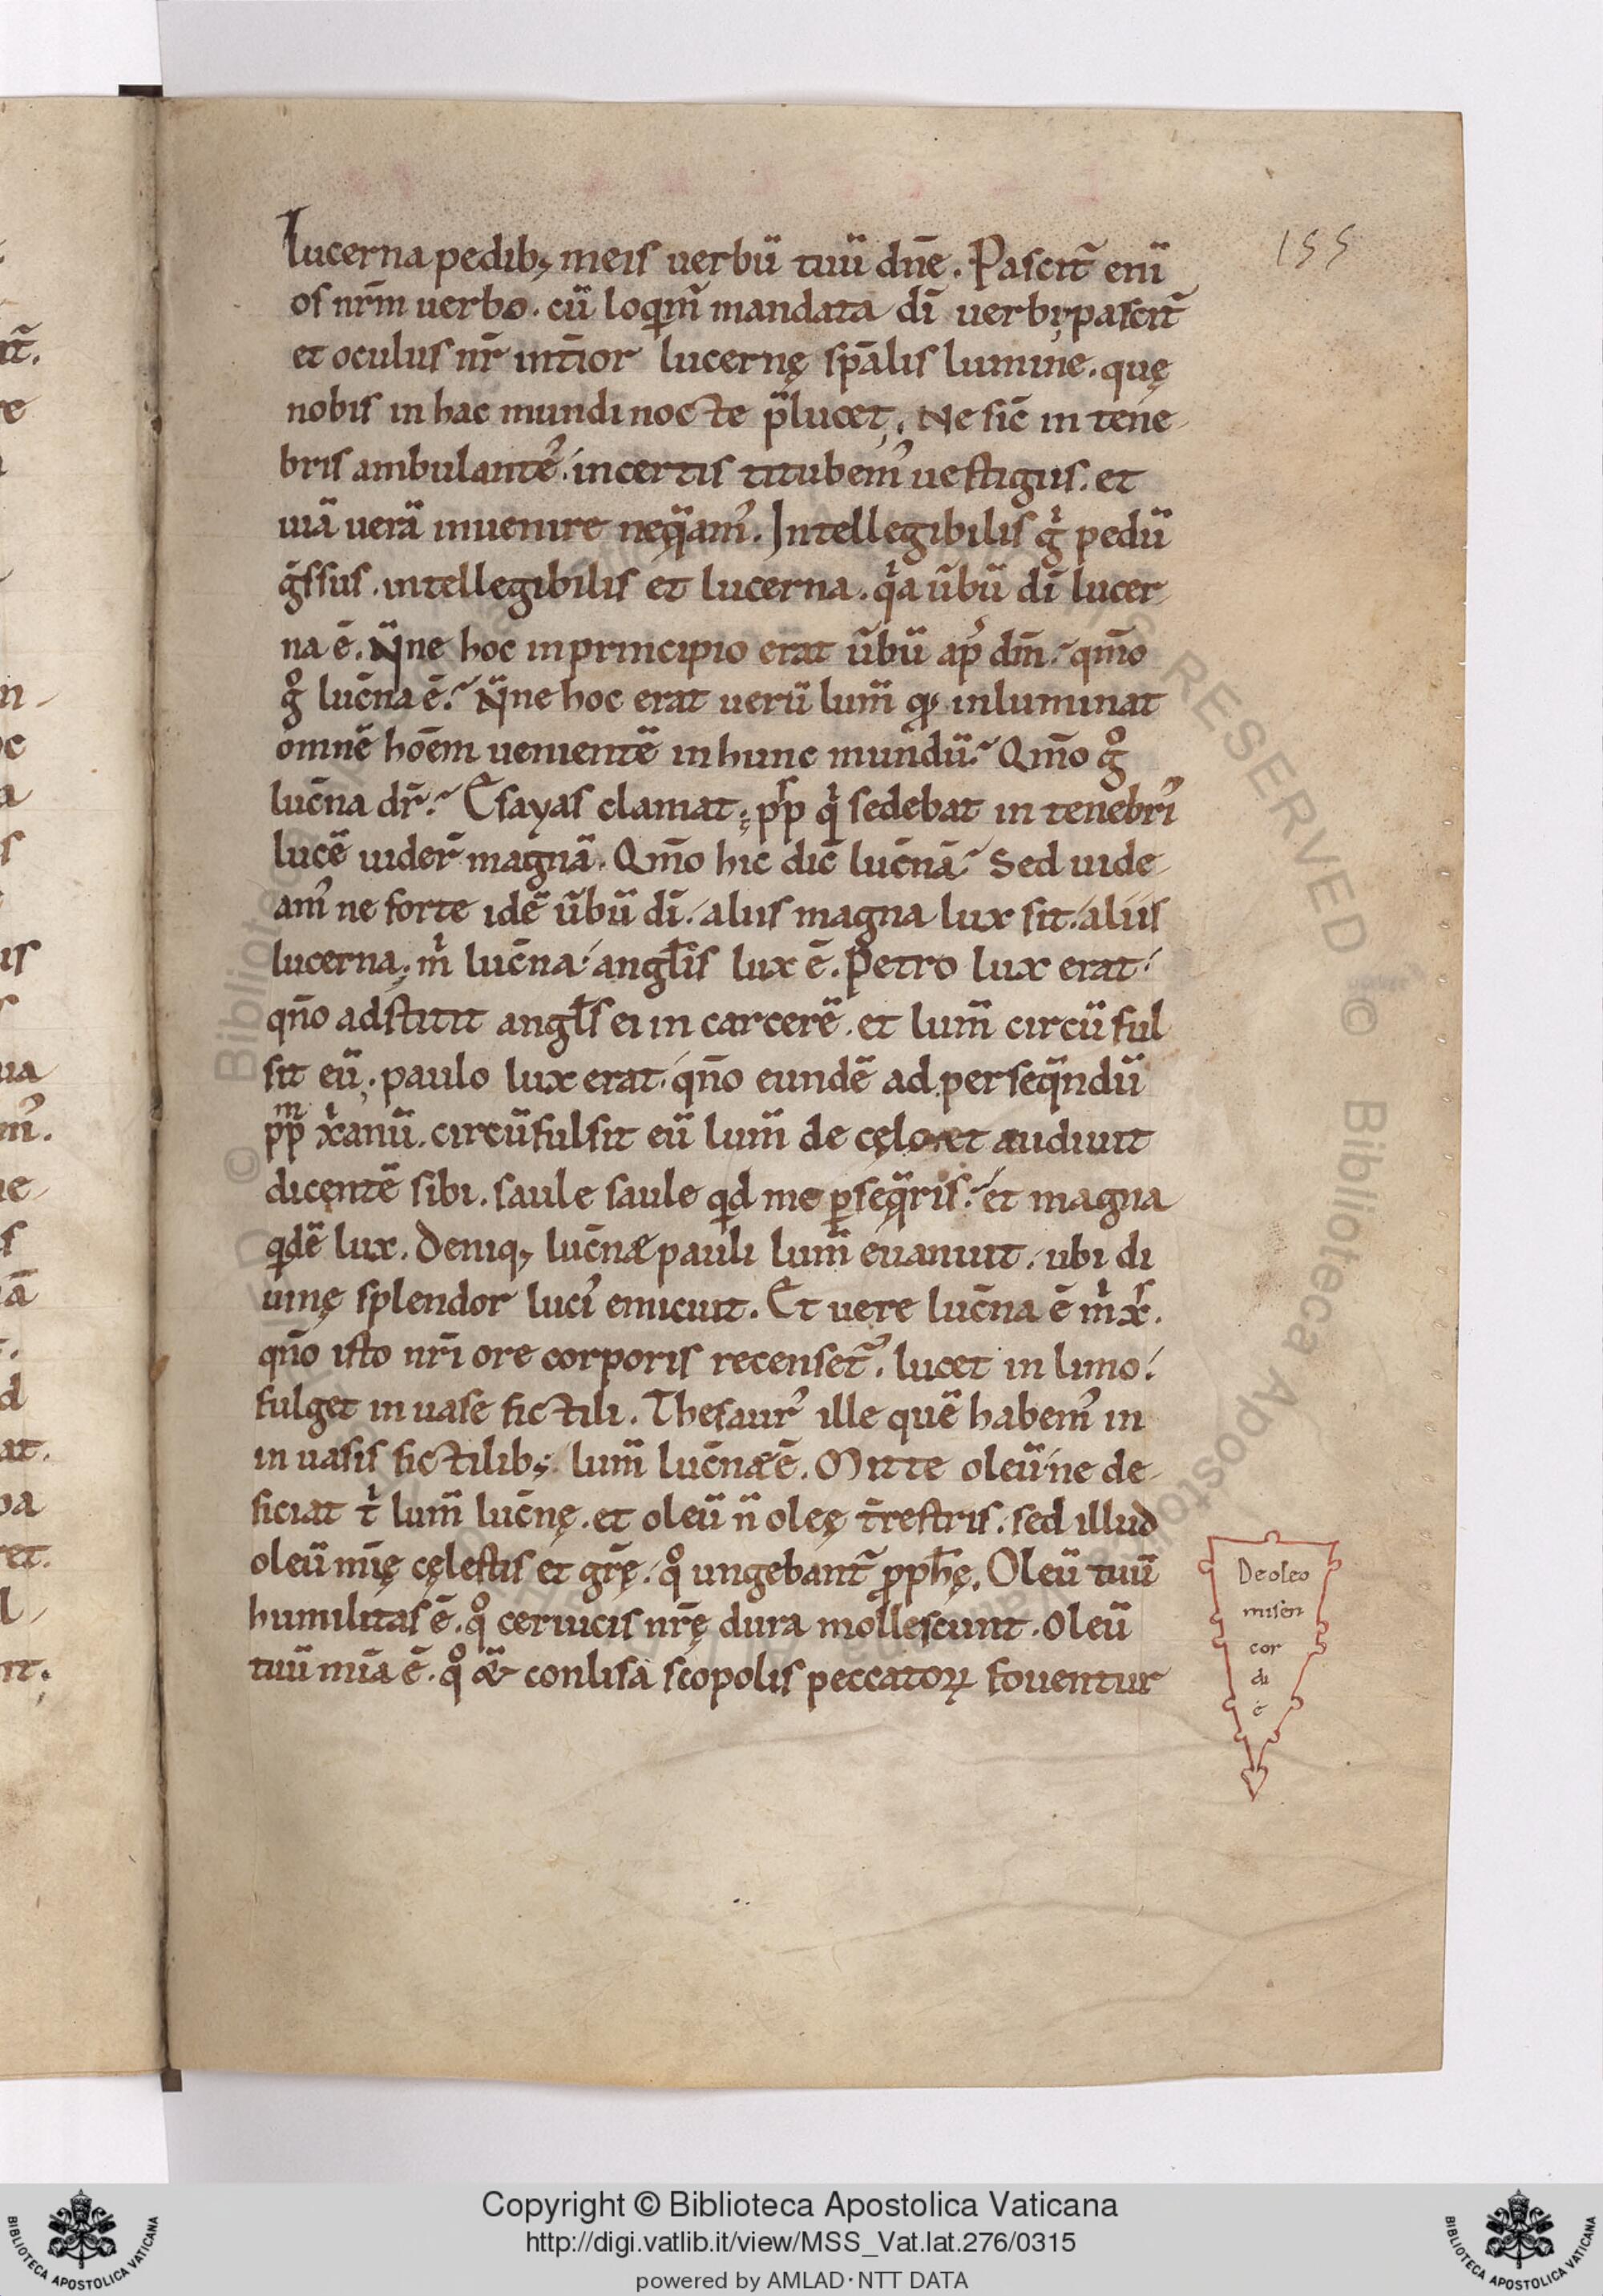 155
Lucerna pedib; meis uerbū tuū dn̄e. Pascit᷑ enī
os nr̄m uerbo. cū loqim᷑ mandata dī uerbi; pascit᷑
et oculus nr̄ int̄ior lucernę sp̄alis lumine. quę
nobis in hac mundi nocte p̄lucet;. Ne sic̄ in tene-
bris ambulante᷒. incertis titubem᷒ uestigiis. et
uiā uerā inuenire neq̄am᷒. Intellegibilis gͥ pedū
ḡssus. intellegibilis et lucerna. qͥa ūbū dī lucer-
na ē. Nͫne hoc inprincipio erat ūbū ap᷒ dm̄. qm̄o
gͦ luc̄na ē. Nͫne hoc erat uerū lum̄ qͩ inluminat
omnē hoēm uenientē in hunc mundū. Qm̄o gͦ
luc̄na dr̄. Esayas clamat; pp̄ qͥ sedebat in tenebri᷒
lucē uider̄ magnā. Qm̄o hic dic̄ luc̄nā. Sed uide-
am᷒ ne forte idē ūbū dī. aliis magna lux sit. aliis
lucerna; mͥ luc̄na. angl̄is lux ē. Petro lux erat.
qn̄o adstitit angl̄s ei in carcerē. et lum̄ circū ful
sit eū; paulo lux erat. qn̄o eundē ad perseq̄ndū
ppᵐ xͥanū. circūfulsit eū lum̄ de cęlo et audiuit
dicentē sibi. saule saule qͥd me ꝑseq̄ris. et magna
qͥdē lux. Deniq; luc̄næ pauli lum̄ euanuit. ubi di
uinę splendor luci᷒ emicuit. Et uere luc̄na ē mͥ xͨ.
qn̄o isto nr̄i ore corporis recenset᷑. lucet in limo.
fulget in uase fictili. Thesaur᷒ ille quē habem᷒ in
in uasis fictilib; lum̄ luc̄næ ē. Mitte oleū ne de-
ficiat tͥ lum̄ luc̄nę. et oleū n̄ oleę t̄restris. sed illud
oleū mīę cęlestis et gr̄ę. qͦ ungebant᷑ ꝓph̄ę. Oleū tuū
humilitas ē. qͦ ceruicis nr̄ę dura mollescunt. Oleū
tuū mīa ē. qͦ &̄ conlisa scopolis peccatoꝝ fouentur
De oleo
miseri
cor
di
ę
Copyright © Biblioteca Apostolica Vaticana
http://digi.vatlib.it/view/MSS_Vat.lat.276/0315
powered by AMLAD·NTT DATA
BIBLIOTECA APOSTOLICA VATICANA
BIBLIOTECA APOSTOLICA VATICANA